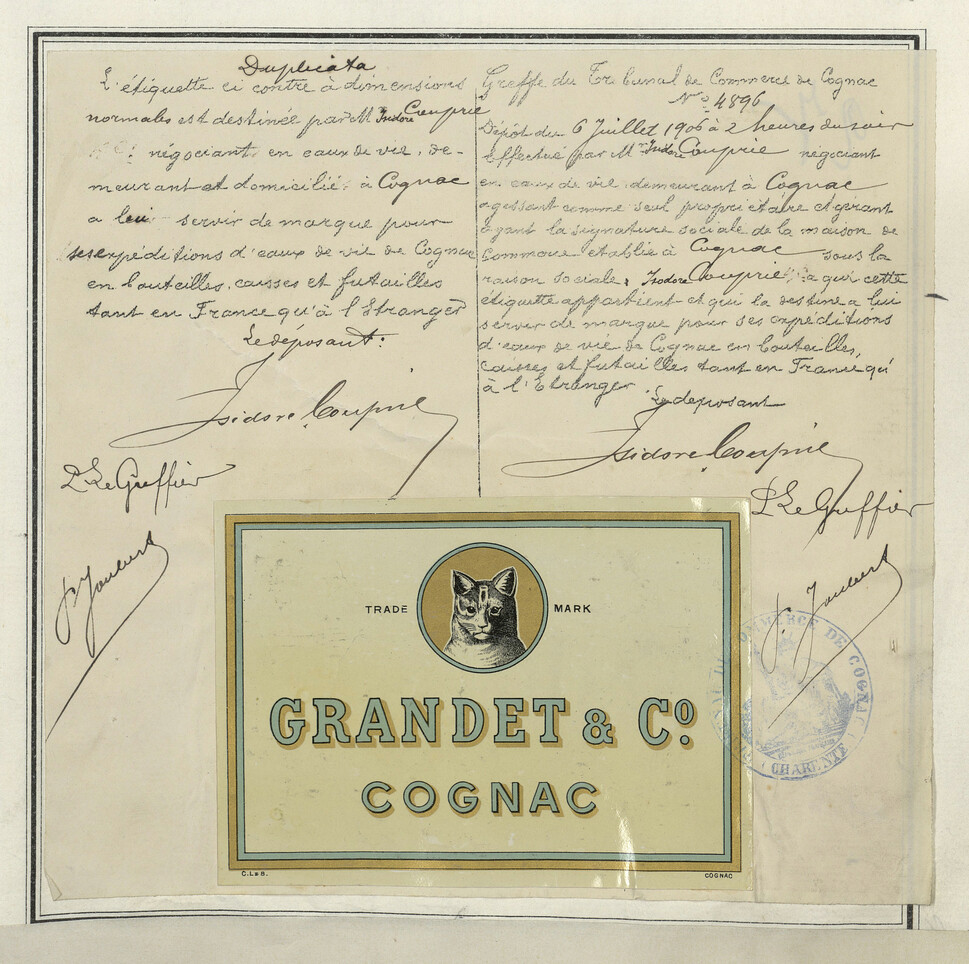 Duplicata
L'étiquette ci contre à dimensions
normales est destinée par M Isidore Couprie
négociant en eaux de vie, de-
meurant et domicilié à Cognac
a lui servir de marque pour
ses expéditions d'eaux de vie de Cognac
en bouteilles, caisses et futailles
tant en France qu'à l'Etranger
Le déposant:
Isidore Couprie
P. Le Greffier
P. Joubert
Greffe du Tribunal de Commerce de Cognac
N° 4896
Dépôt du 6 Juillet 1906 à 2 heures du soir
Effectué par Mr Isidore Couprie négociant
en eaux de vie demeurant à Cognac
agissant comme seul propriétaire et gérant
ayant la signature sociale de la maison de
commerce établie à Cognac sous la
raison sociale, Isidore Couprie à qui cette
étiquette appartient et qui la destine a lui
servir de marque pour ses expéditions
d'eaux de vie de Cognac en bouteilles,
caisses et futailles tant en France qu'
à l'Etranger
Le déposant
Isidore Couprie
P. Le Greffier
P. Joubert
TRADE MARK
GRANDET & Cº
COGNAC
C.L&B. COGNAC
COMMERCE DE COGNAC
CHARENTE